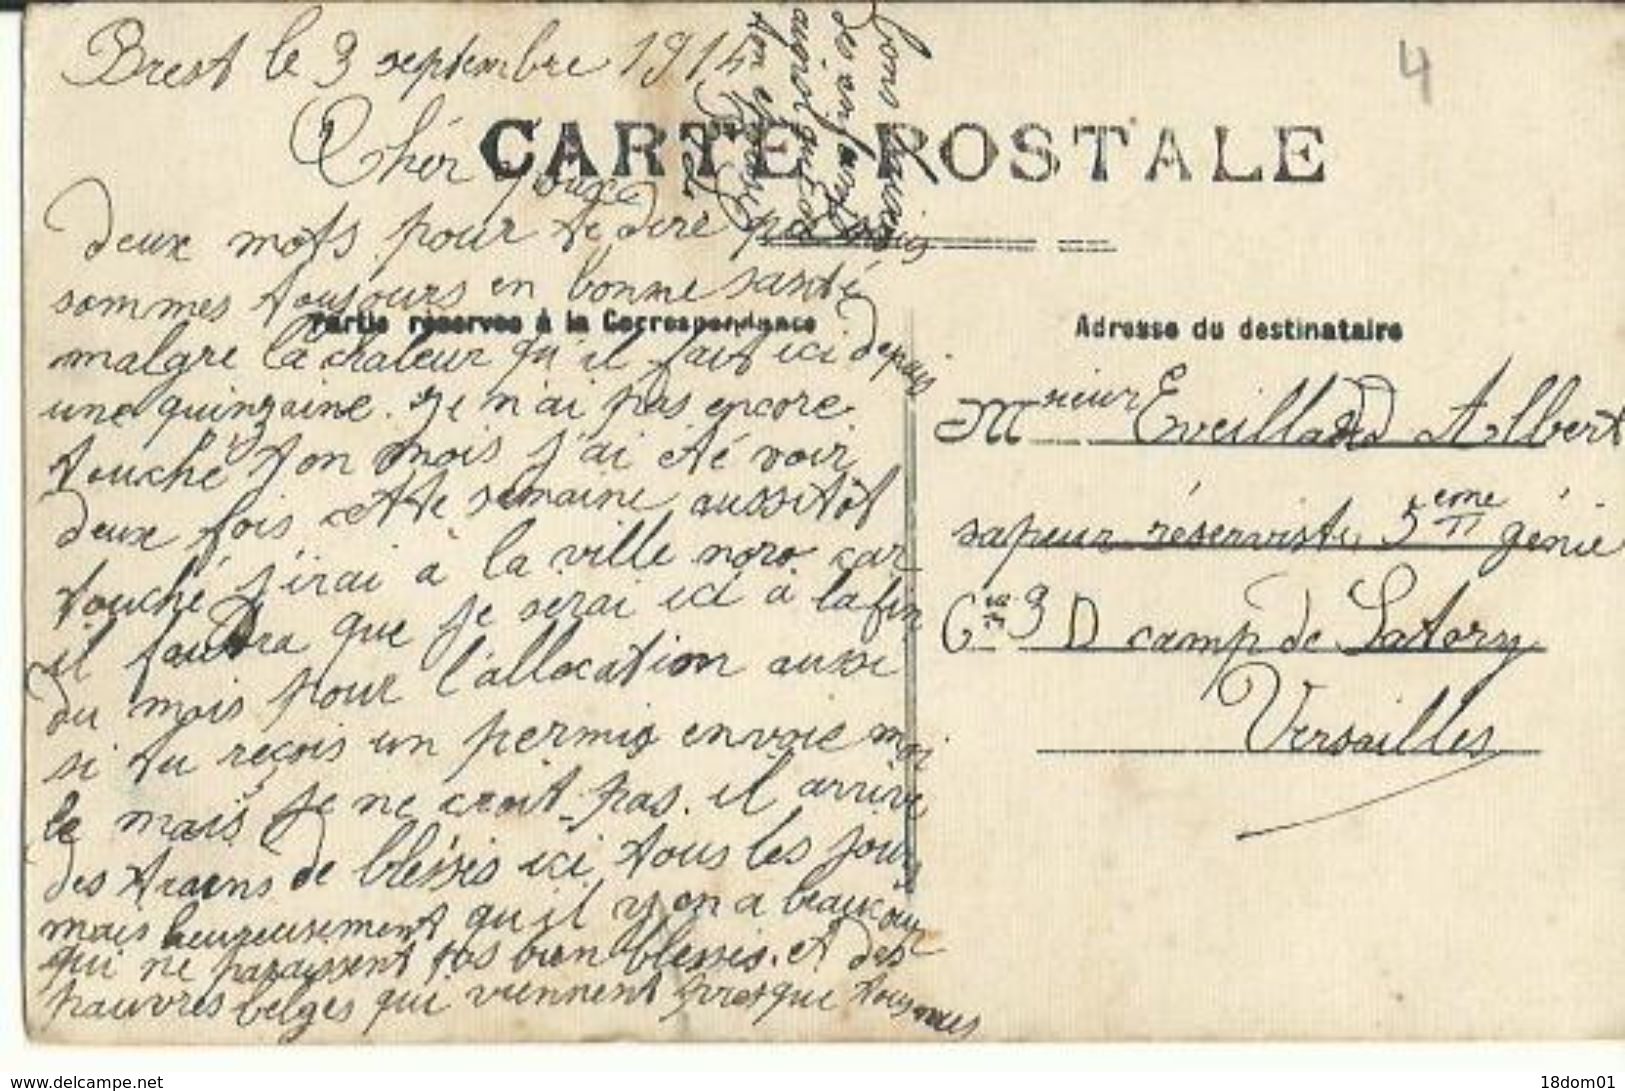 Brest le 3 septembre 1914
Chér
CARTE POSTALE
4
deux mots pour te dire
sommes toujours en bonne santé
Partie réservée à la Correspondance
malgre la chaleur qu'il fait ici depuis
une quinzaine. Je n'ai pas encore
touché ton mois j'ai été voir
deux fois cette semaine aussitôt
touché j'irai à la ville car
il faudra que je serai ici à la fin
du mois pour l'allocation aussi
si tu reçois un permis envoie moi
le mais je ne croit pas. il arrive
des trains de blessés ici tous les jours
mais heureusement qu'il y en a beaucoup
qui ne paraissent pas bien blessés. et des
pauvres belges qui viennent presque tous nus
les enfants
Adresse du destinataire
Msieur Eveillard Albert
sapeur réserviste 5eme génie
Cie 9 D camp de Satory
Versailles
www.delcampe.net
18dom01